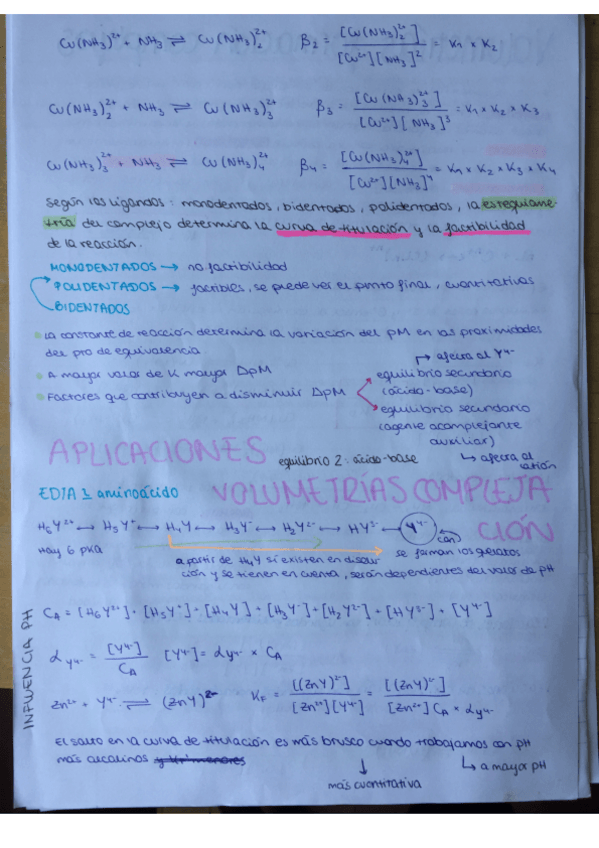 Cu(NH₃)²⁺ + NH₃ ⇌ Cu(NH₃)₂²⁺   β₂ = [Cu(NH₃)₂²⁺] / [Cu²⁺][NH₃]² = K₁ x K₂
Cu(NH₃)₂²⁺ + NH₃ ⇌ Cu(NH₃)₃²⁺   β₃ = [Cu(NH₃)₃²⁺] / [Cu²⁺][NH₃]³ = K₁ x K₂ x K₃
Cu(NH₃)₃²⁺ + NH₃ ⇌ Cu(NH₃)₄²⁺   β₄ = [Cu(NH₃)₄²⁺] / [Cu²⁺][NH₃]⁴ = K₁ x K₂ x K₃ x K₄
Según los ligandos: monodentados, bidentados, polidentados, la estequiome-
tría del complejo determina la curva de titulación y la factibilidad
de la reacción.
MONODENTADOS → no factibilidad
POLIDENTADOS → factibles, se puede ver el punto final, cuantitativas
BIDENTADOS
La constante de reacción determina la variación del pM en las proximidades
del pto de equivalencia.
→ afecta al Y⁴⁻
A mayor valor de K mayor ΔpM
equilibrio secundario
(ácido-base)
Factores que contribuyen a disminuir ΔpM
equilibrio secundario
(agente acomplejante
auxiliar)
↳ afecta al
catión
APLICACIONES
equilibrio 2: ácido-base
VOLUMETRÍAS COMPLEJA
CIÓN
EDTA 1 aminoácido
H₆Y²⁺ ↔ H₅Y⁺ ↔ H₄Y ↔ H₃Y⁻ ↔ H₂Y²⁻ ↔ HY³⁻ ↔ Y⁴⁻
con
Hay 6 pKa
se forman los quelatos
a partir de H₄Y sí existen en disolu-
ción y se tienen en cuenta, serán dependientes del valor de pH
INFLUENCIA PH
C_A = [H₆Y²⁺] + [H₅Y⁺] + [H₄Y] + [H₃Y⁻] + [H₂Y²⁻] + [HY³⁻] + [Y⁴⁻]
α_Y⁴⁻ = [Y⁴⁻] / C_A   [Y⁴⁻] = α_Y⁴⁻ x C_A
Zn²⁺ + Y⁴⁻ ⇌ (ZnY)²⁻   K_F = [(ZnY)²⁻] / [Zn²⁺][Y⁴⁻] = [(ZnY)²⁻] / [Zn²⁺] C_A x α_Y⁴⁻
El salto en la curva de titulación es más brusco cuando trabajamos con pH
más alcalinos
↳ a mayor pH
↓
más cuantitativa